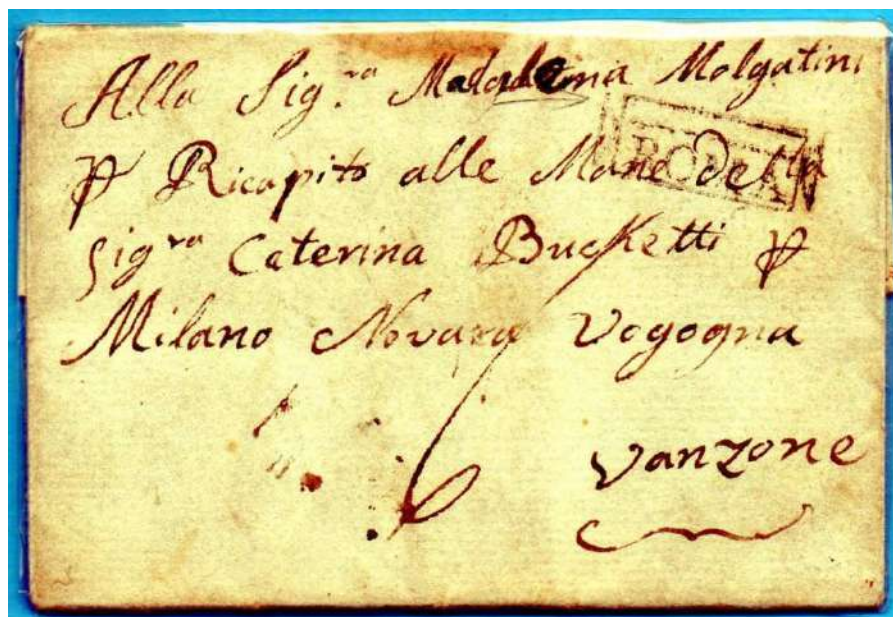 Alla Sig.ra Madalena Molgatini
ROMA
P Ricapito alle Mane della
Sig.ra Caterina Bucketti P
Milano Novara Vogogna
6
Vanzone